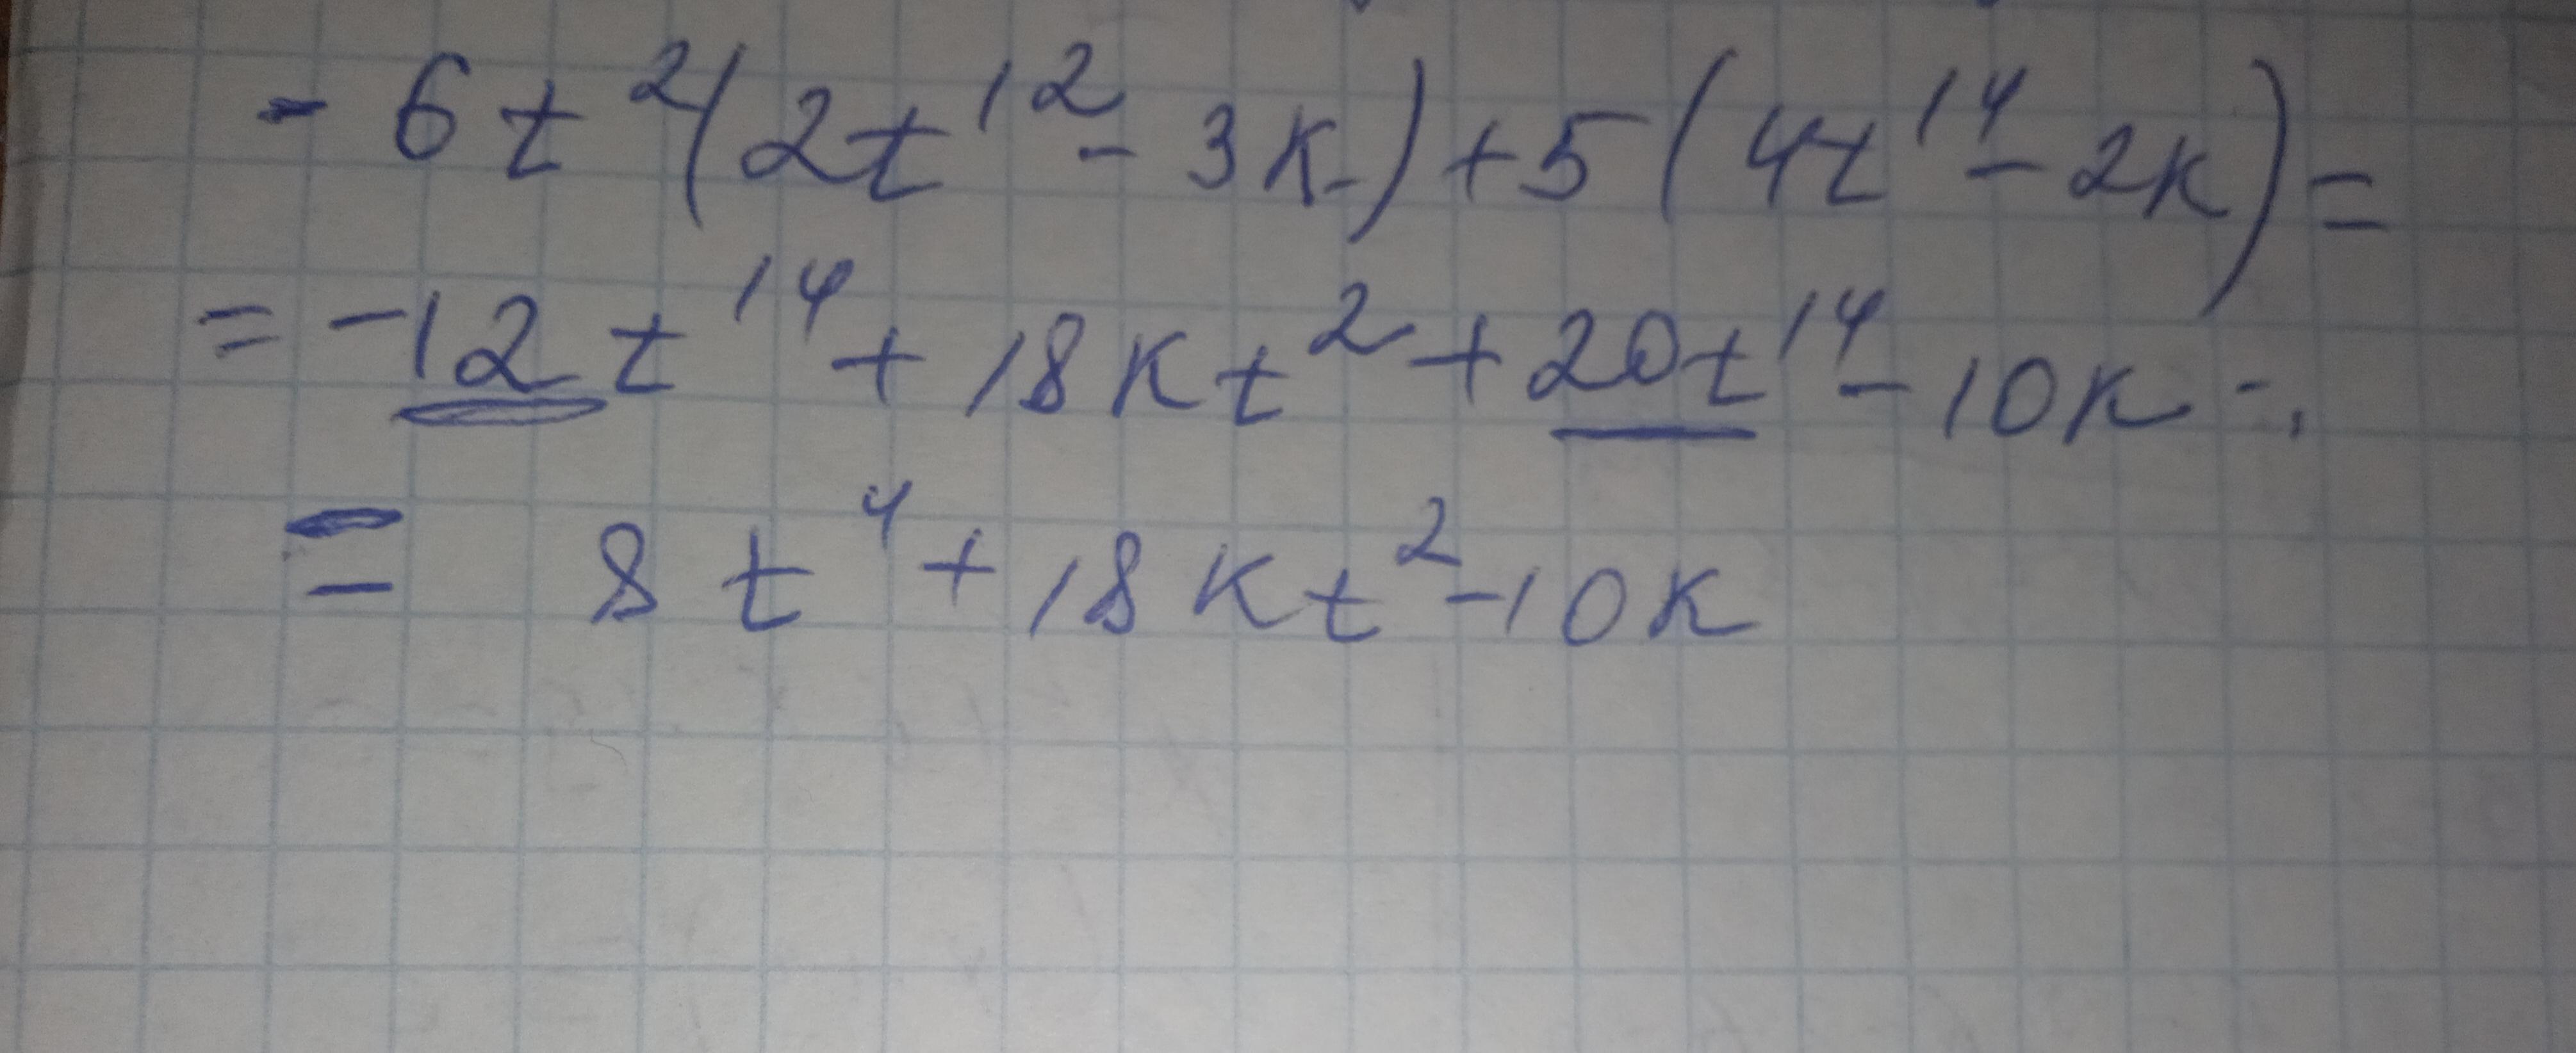 - 6t²(2t¹² - 3k) + 5(4t¹⁴ - 2k) =
= -12t¹⁴ + 18kt² + 20t¹⁴ - 10k =
= 8t⁴ + 18kt² - 10k